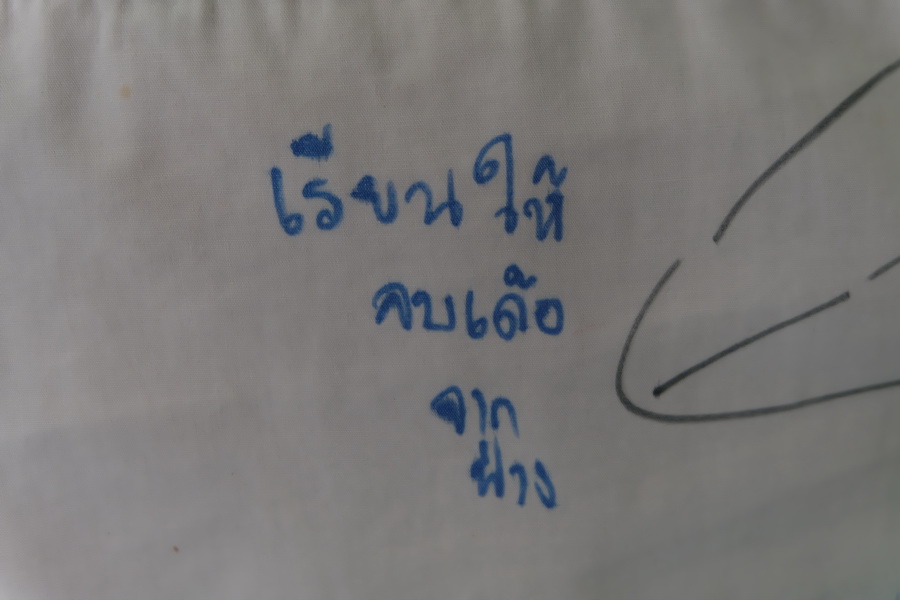 เรียนให้
จบเด้อ
จาก
ฟาง